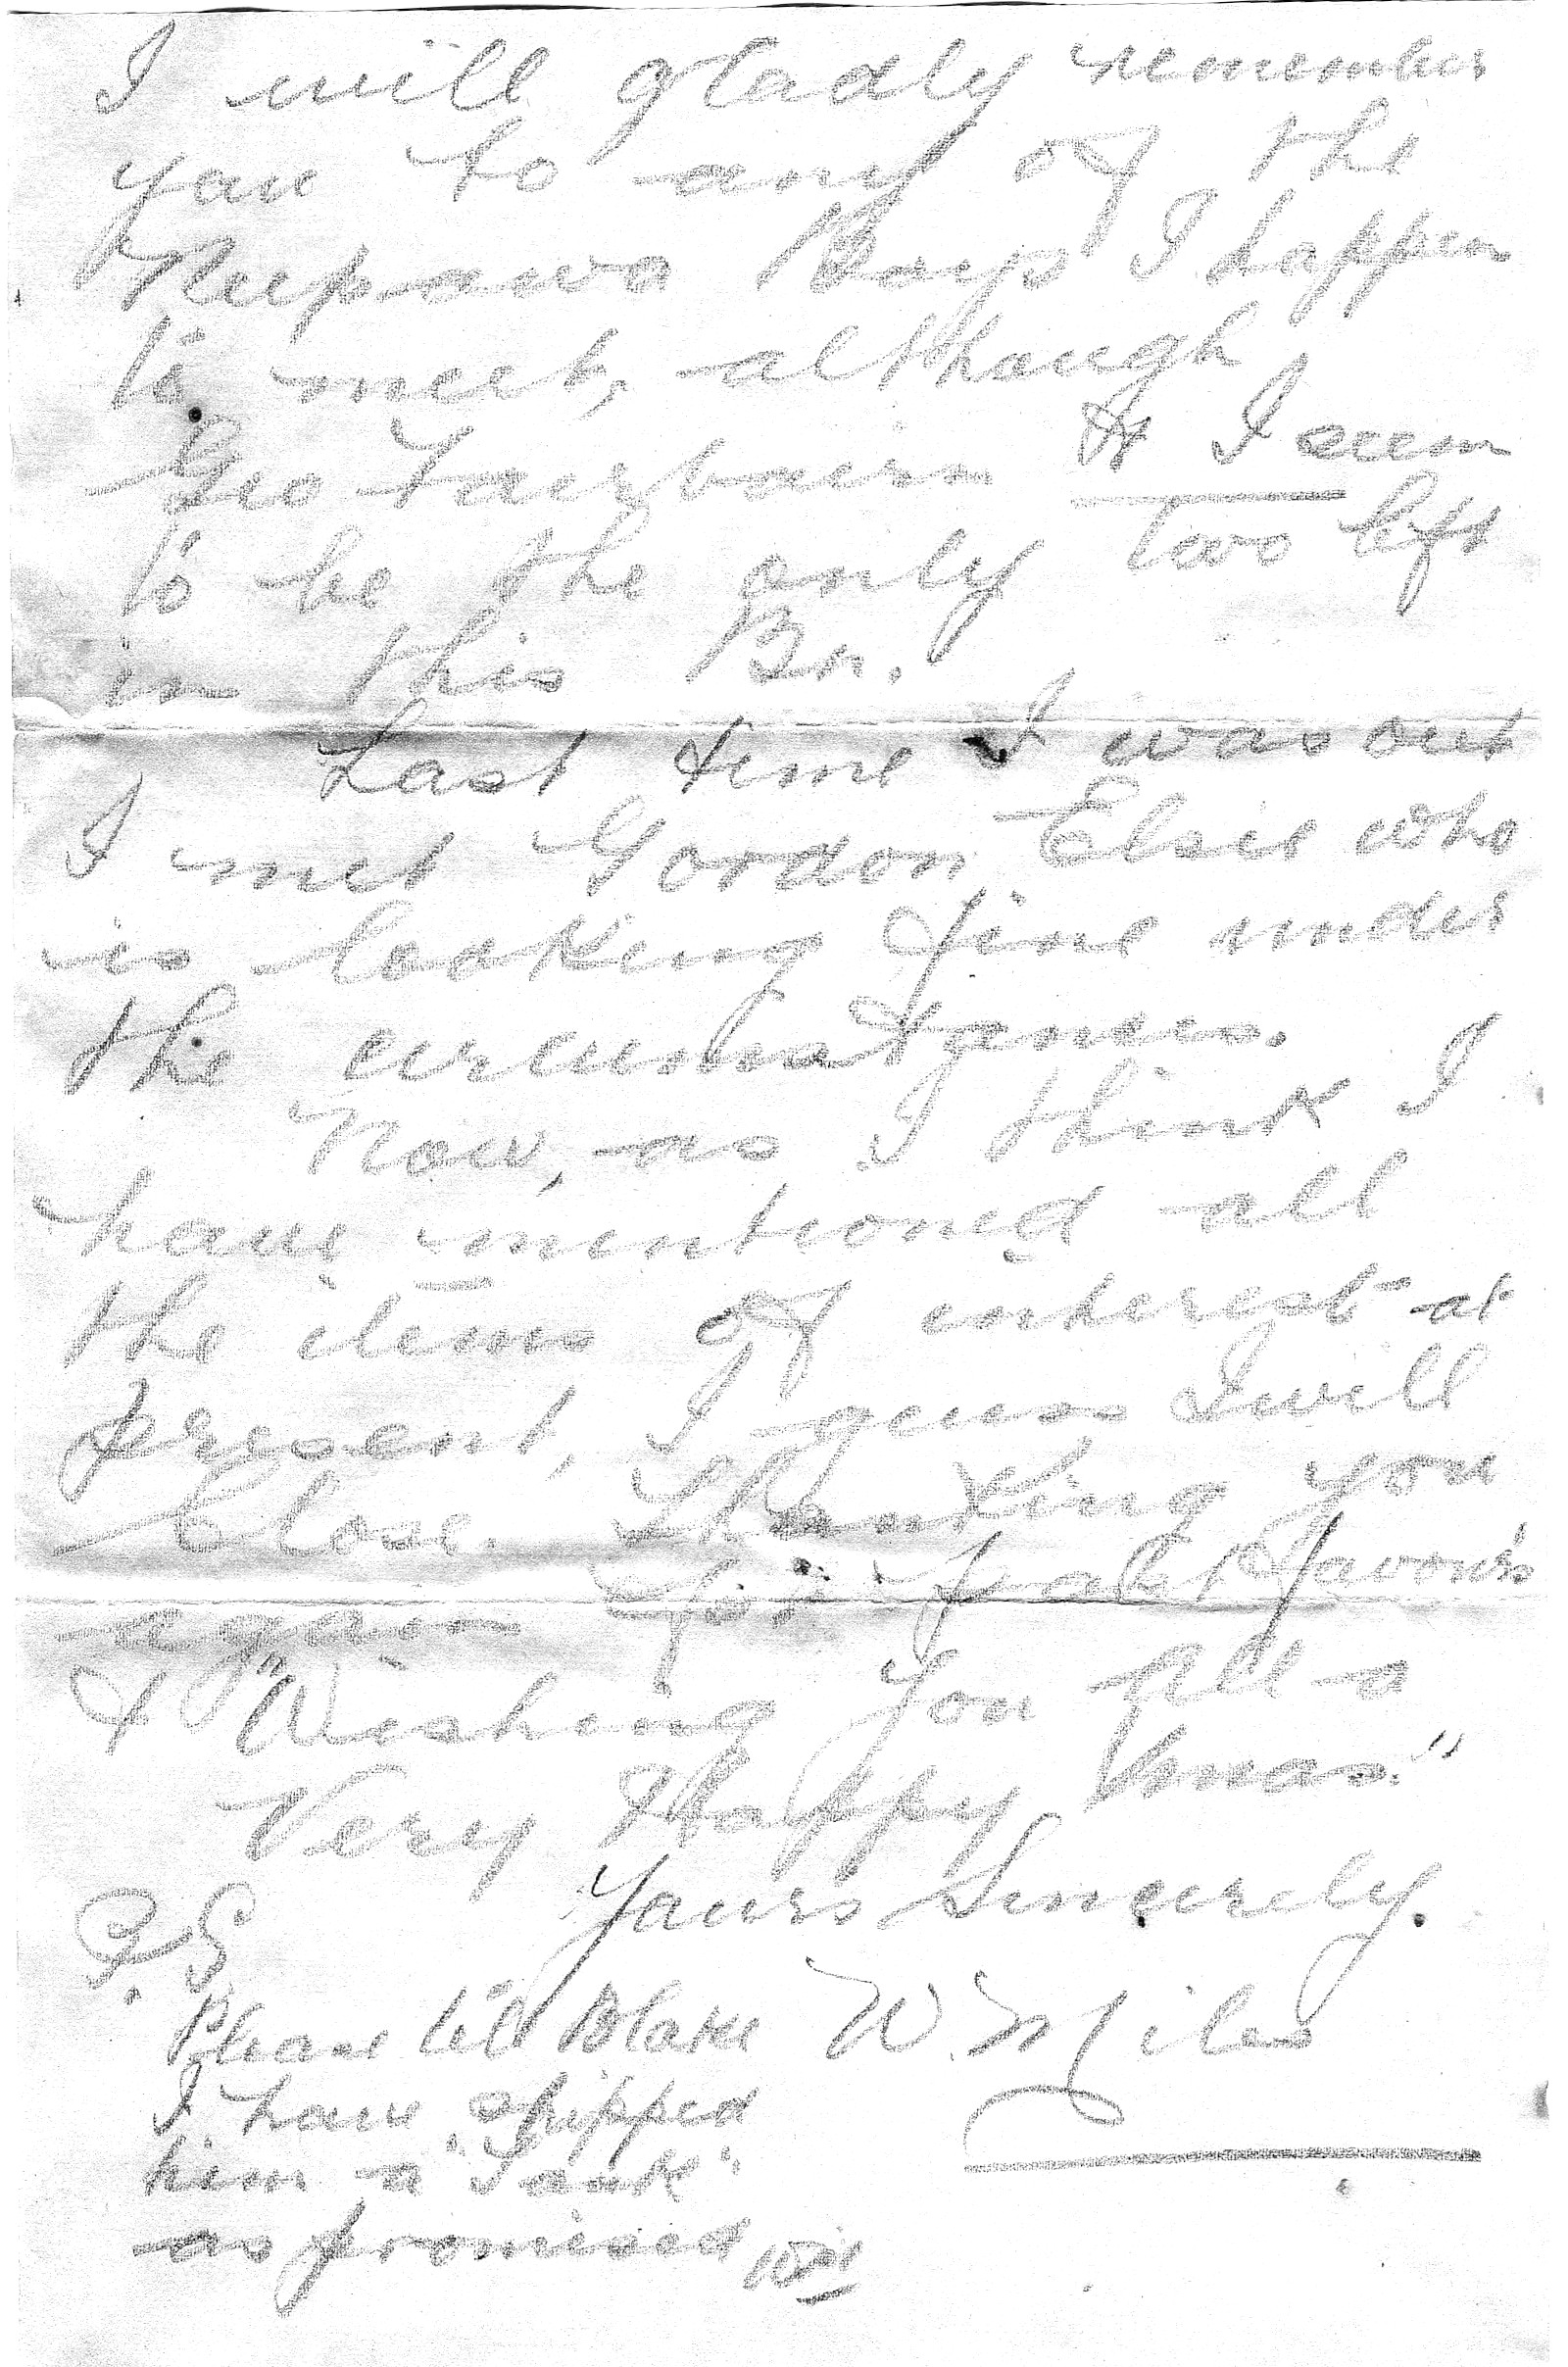 I will gladly remember
you to any of the
Neepawa Boys I happen
to meet, although
Geo Fairbairn & I seem
to be the only two left
in this Bn.
Last time I was out
I met Gordon Elsie who
is looking fine under
the circumstances.
Now, as I think I
have mentioned all
the items of interest at
present, I guess I will
Close. Thanking you
again for past favours
& "Wishing you all a
Very Happy Xmas."
Yours Sincerely.
W. Miles
P.S.
Please tell Blake
I have shipped
him a "Tank"
as promised